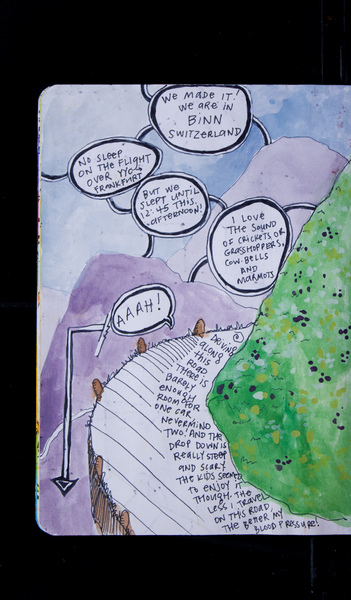 WE MADE IT!
WE ARE IN
BINN
SWITZERLAND
NO SLEEP
ON THE FLIGHT
OVER YYC-
FRANKFURT
BUT WE
SLEPT UNTIL
12:45 THIS
AFTERNOON!
I LOVE
THE SOUND
OF CRICKETS OR
GRASSHOPPERS,
COW BELLS
AND
MARMOTS
AAAH!
DRIVING
ALONG
THIS
ROAD
THERE IS
BARELY
ENOUGH
ROOM FOR
ONE CAR
NEVERMIND
TWO! AND THE
DROP DOWN IS
REALLY STEEP
AND SCARY
THE KIDS SEEMED
TO ENJOY IT
THOUGH. THE
LESS I TRAVEL
ON THIS ROAD,
THE BETTER MY
BLOOD PRESSURE!